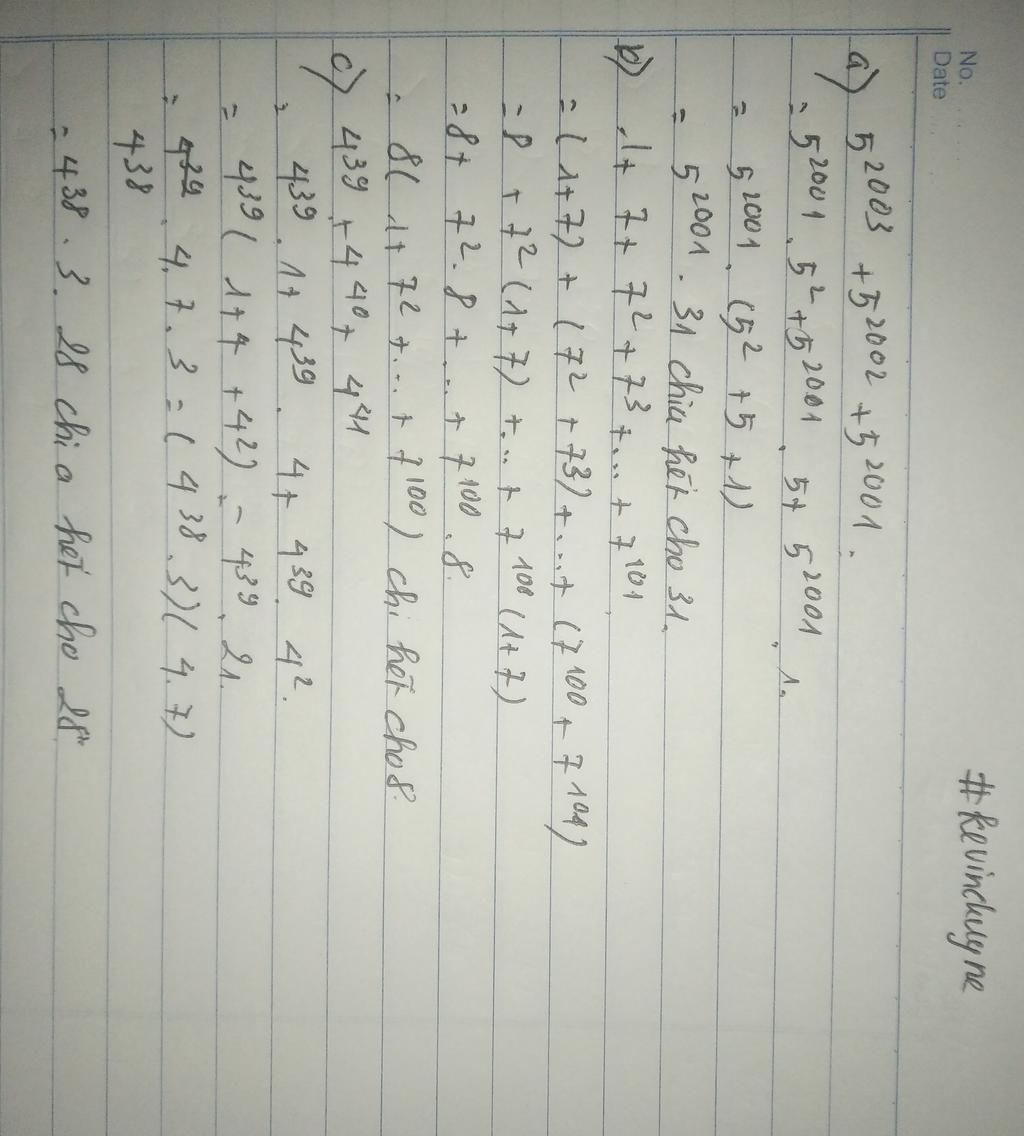 No.
Date
#kevinchuyne
a) 5²⁰⁰³ + 5²⁰⁰² + 5²⁰⁰¹.
= 5²⁰⁰¹ . 5² + 5²⁰⁰¹ . 5 + 5²⁰⁰¹ . 1.
= 5²⁰⁰¹ . (5² + 5 + 1)
= 5²⁰⁰¹ . 31 chia hết cho 31.
b) 1 + 7 + 7² + 7³ + ... + 7¹⁰¹
= (1 + 7) + (7² + 7³) + ... + (7¹⁰⁰ + 7¹⁰¹)
= 8 + 7² (1 + 7) + ... + 7¹⁰⁰ (1 + 7)
= 8 + 7² . 8 + ... + 7¹⁰⁰ . 8.
= 8( 1 + 7² + ... + 7¹⁰⁰ ) chi hết cho 8.
c) 4³⁹ + 4⁴⁰ + 4⁴¹
= 4³⁹ . 1 + 4³⁹ . 4 + 4³⁹ . 4².
= 4³⁹ ( 1 + 4 + 4²) = 4³⁹ . 21.
= 4³⁹ . 4 . 7 . 3 = ( 4³⁸ . 3) ( 4 . 7)
4³⁸
= 4³⁸ . 3 . 28 chia hết cho 28